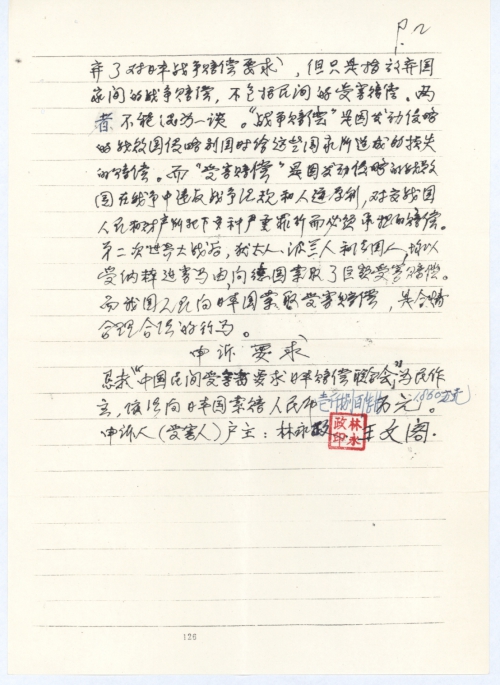 P.2
弃了对日本战争赔偿要求），但只是指放弃国
家间的战争赔偿，不包括民间的受害赔偿。两
者不能混为一谈。“战争赔偿”是因发动侵略
的战败国侵略别国时给这些国家所造成的损失
的赔偿。而“受害赔偿”是因发动侵略的战败
国在战争中违反战争法规和人道原则，对交战国
人民和财产所犯下各种严重罪行而必须承担的赔偿。
第二次世界大战后，犹太人、波兰人和法国人，均以
受纳粹迫害为由，向德国索取了巨额受害赔偿。
而我国人民向日本国索取受害赔偿，是合情
合理合法的行为。
申诉要求
恳求“中国民间受害者要求日本赔偿联合会”为民作
主，依法向日本国索赔人民币 万元。1860万元
申诉人（受害人）户主：林永政 王文阁.
林永政印
126